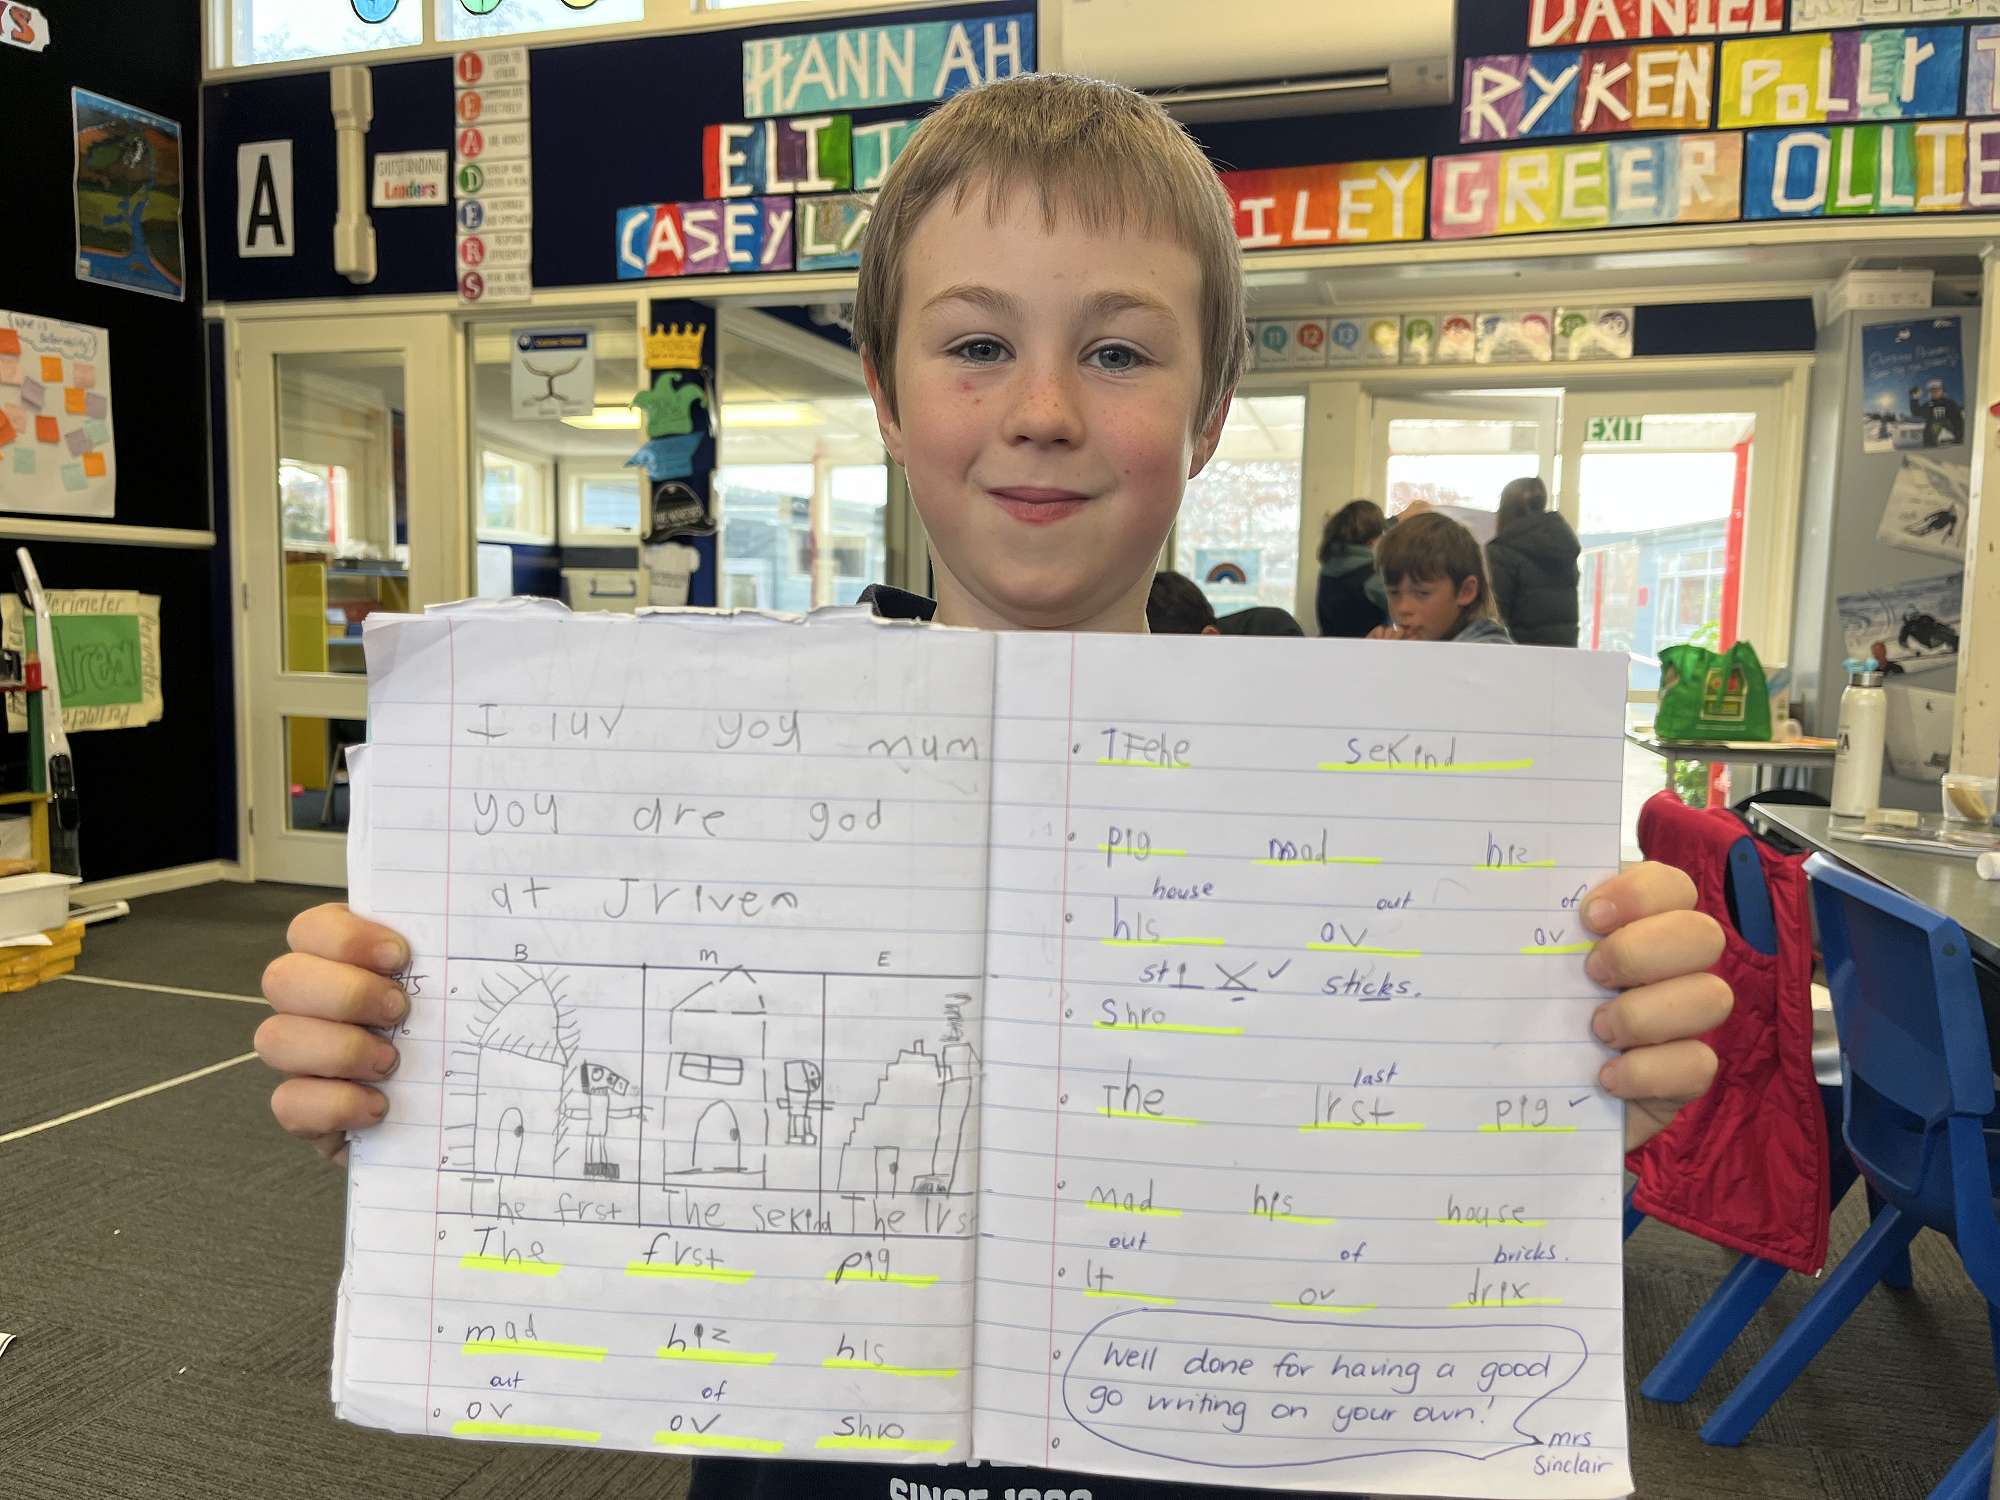 HANNAH
DANIEL
RYKEN POLLY
ELIJ
CASEY
ILEY GREER OLLIE
A
OUTSTANDING
Leaders
L
E
A
D
E
R
S
EXIT
11 12 13
Perimeter
Area
Perimeter
I luv yoy mum
yoy are god
at Jriven
B m E
The frst The sekind The lrst
The frst pig
mad hiz his
out of
ov ov shro
The sekind
pig mad hiz
house out of
his ov ov
sti X ✓ sticks.
Shro
last
The lrst pig ✓
mad his house
out of bricks.
It ov drix
Well done for having a good
go writing on your own!
mrs
Sinclair